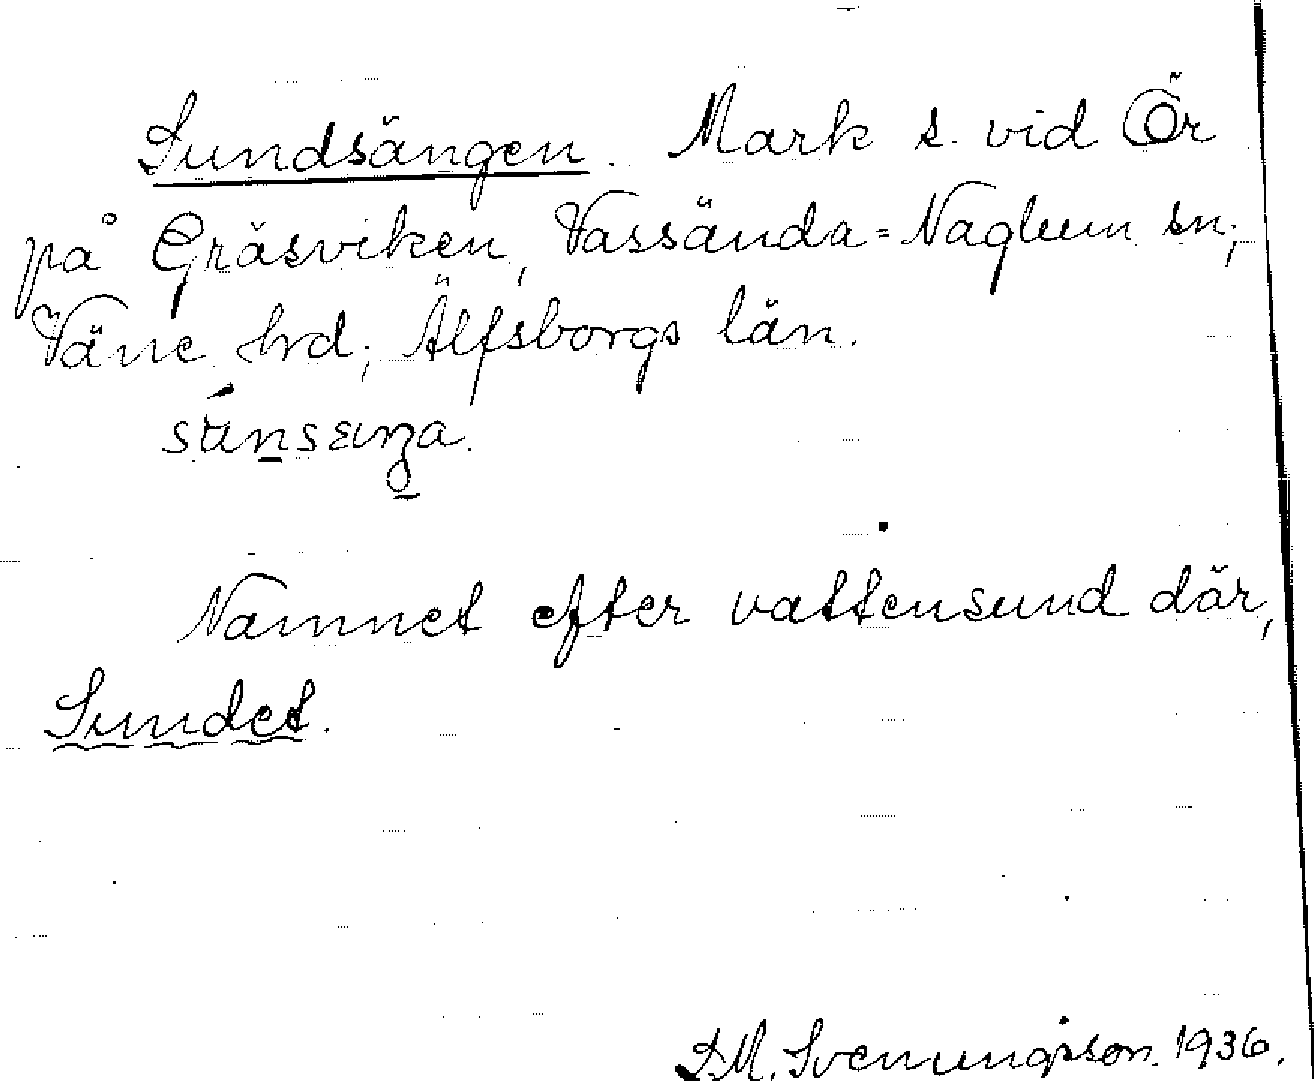 Sundsängen. Mark s. vid Ör
på Gräsviken, Vassända=Naglum sn;
Väne hrd; Älfsborgs län.
Namnet efter vattensund där,
Sundet.
D.M. Svenungsson. 1936.